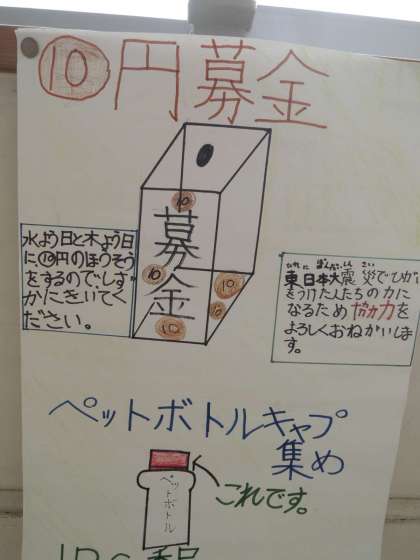 ⑩円募金
募金
10
10
10
10
10
水よう日と木よう日
に⑩円のほうそう
をするので、しず
かにきいてく
ださい。
東日本大震災でひがい
をうけた人たちの力に
なるため協力を
よろしくおねがいしま
す。
ペットボトルキャプ
集め
ペットボトル
これです。